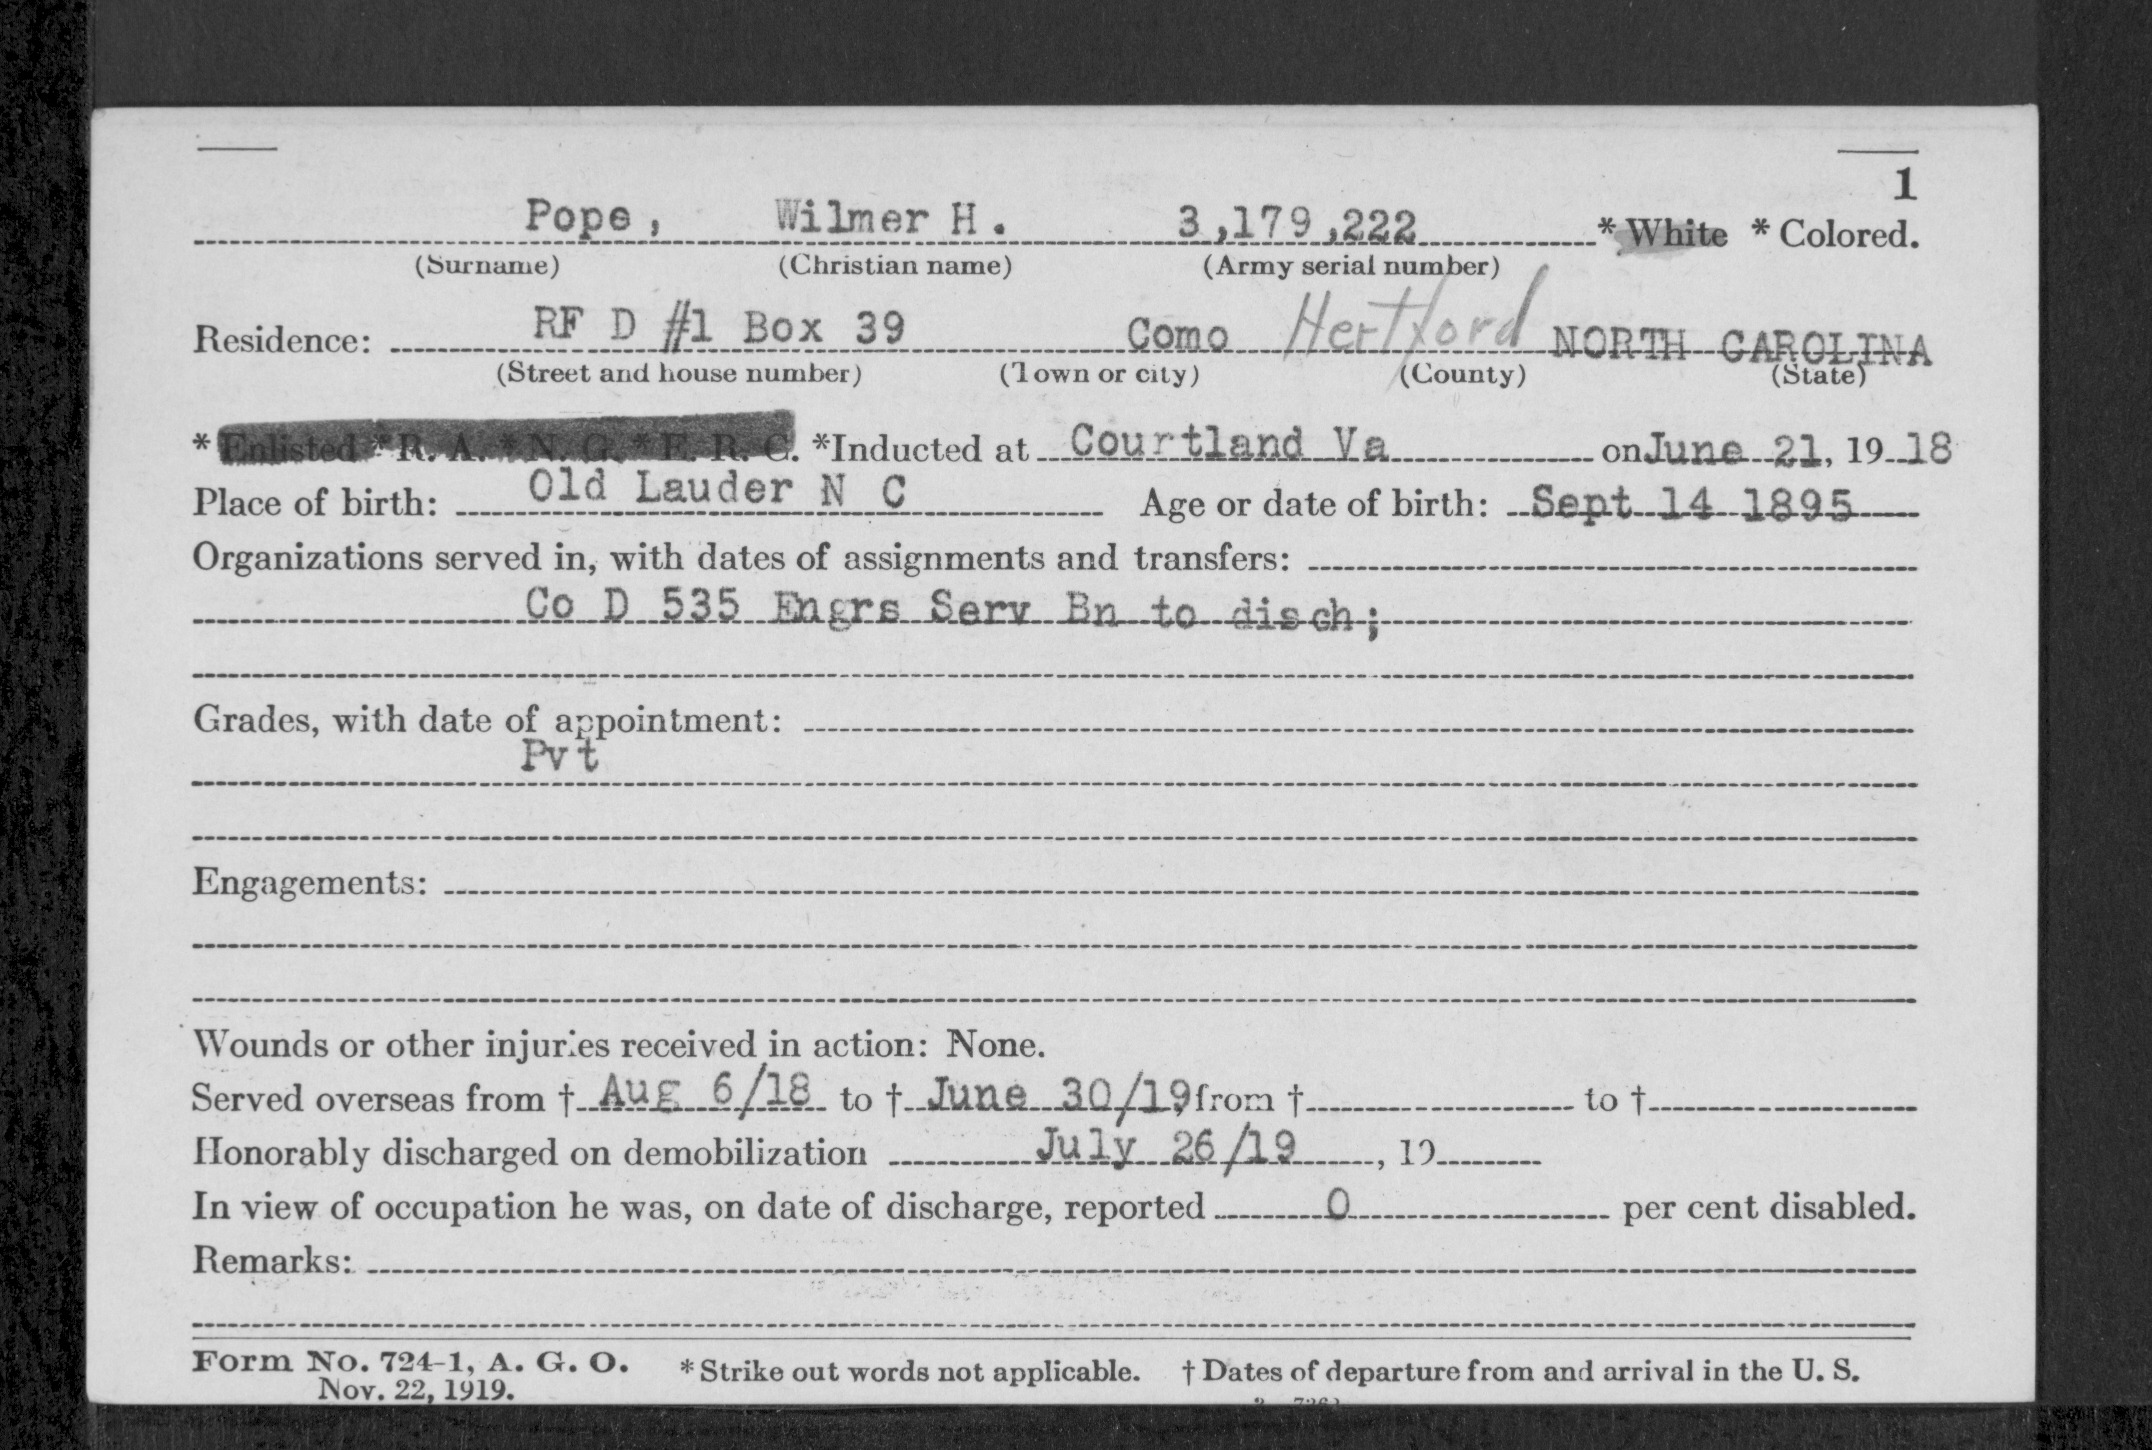 1
Pope, Wilmer H. 3,179,222 * White * Colored.
(Surname) (Christian name) (Army serial number)
Residence: RF D #1 Box 39 Como Hertford NORTH CAROLINA
(Street and house number) (Town or city) (County) (State)
* Enlisted * R. A. * N. G. * E. R. C. *Inducted at Courtland Va on June 21, 19 18
Place of birth: Old Lauder N C Age or date of birth: Sept 14 1895
Organizations served in, with dates of assignments and transfers:
Co D 535 Engrs Serv Bn to disch;
Grades, with date of appointment:
Pvt
Engagements:
Wounds or other injuries received in action: None.
Served overseas from † Aug 6/18 to † June 30/19, from † to †
Honorably discharged on demobilization July 26/19, 19
In view of occupation he was, on date of discharge, reported 0 per cent disabled.
Remarks:
Form No. 724-1, A. G. O. * Strike out words not applicable. † Dates of departure from and arrival in the U. S.
Nov. 22, 1919.